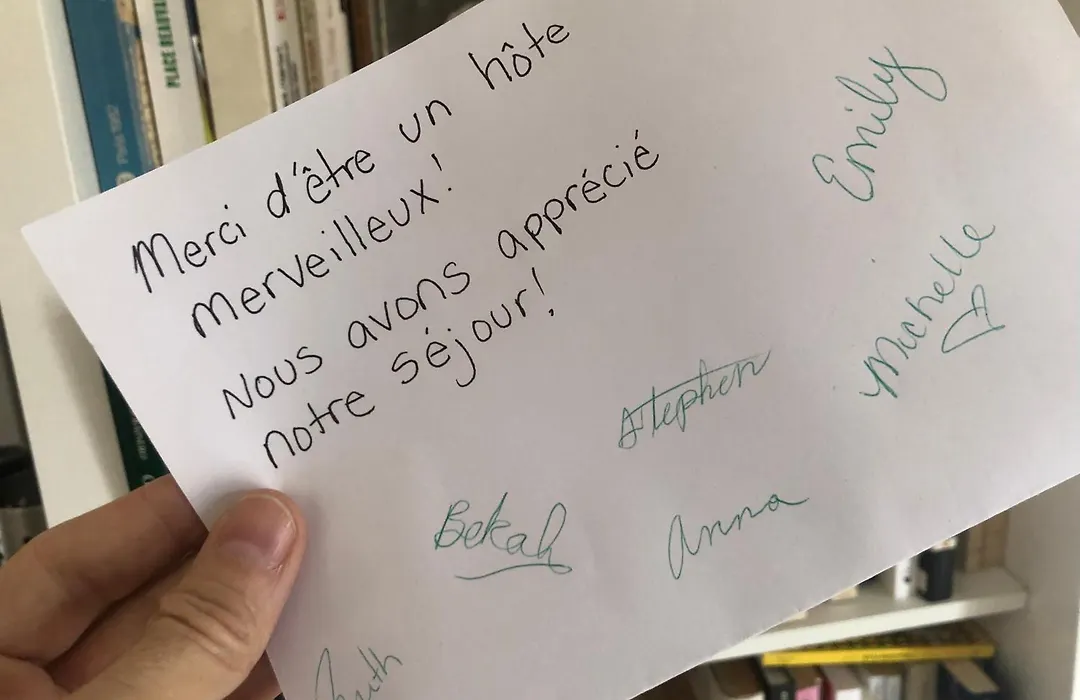 Merci d'être un hôte
merveilleux!
Nous avons apprécié
notre séjour!
Emily
Michelle
Stephen
Bekah
Anna
PLACE BEAUVAU